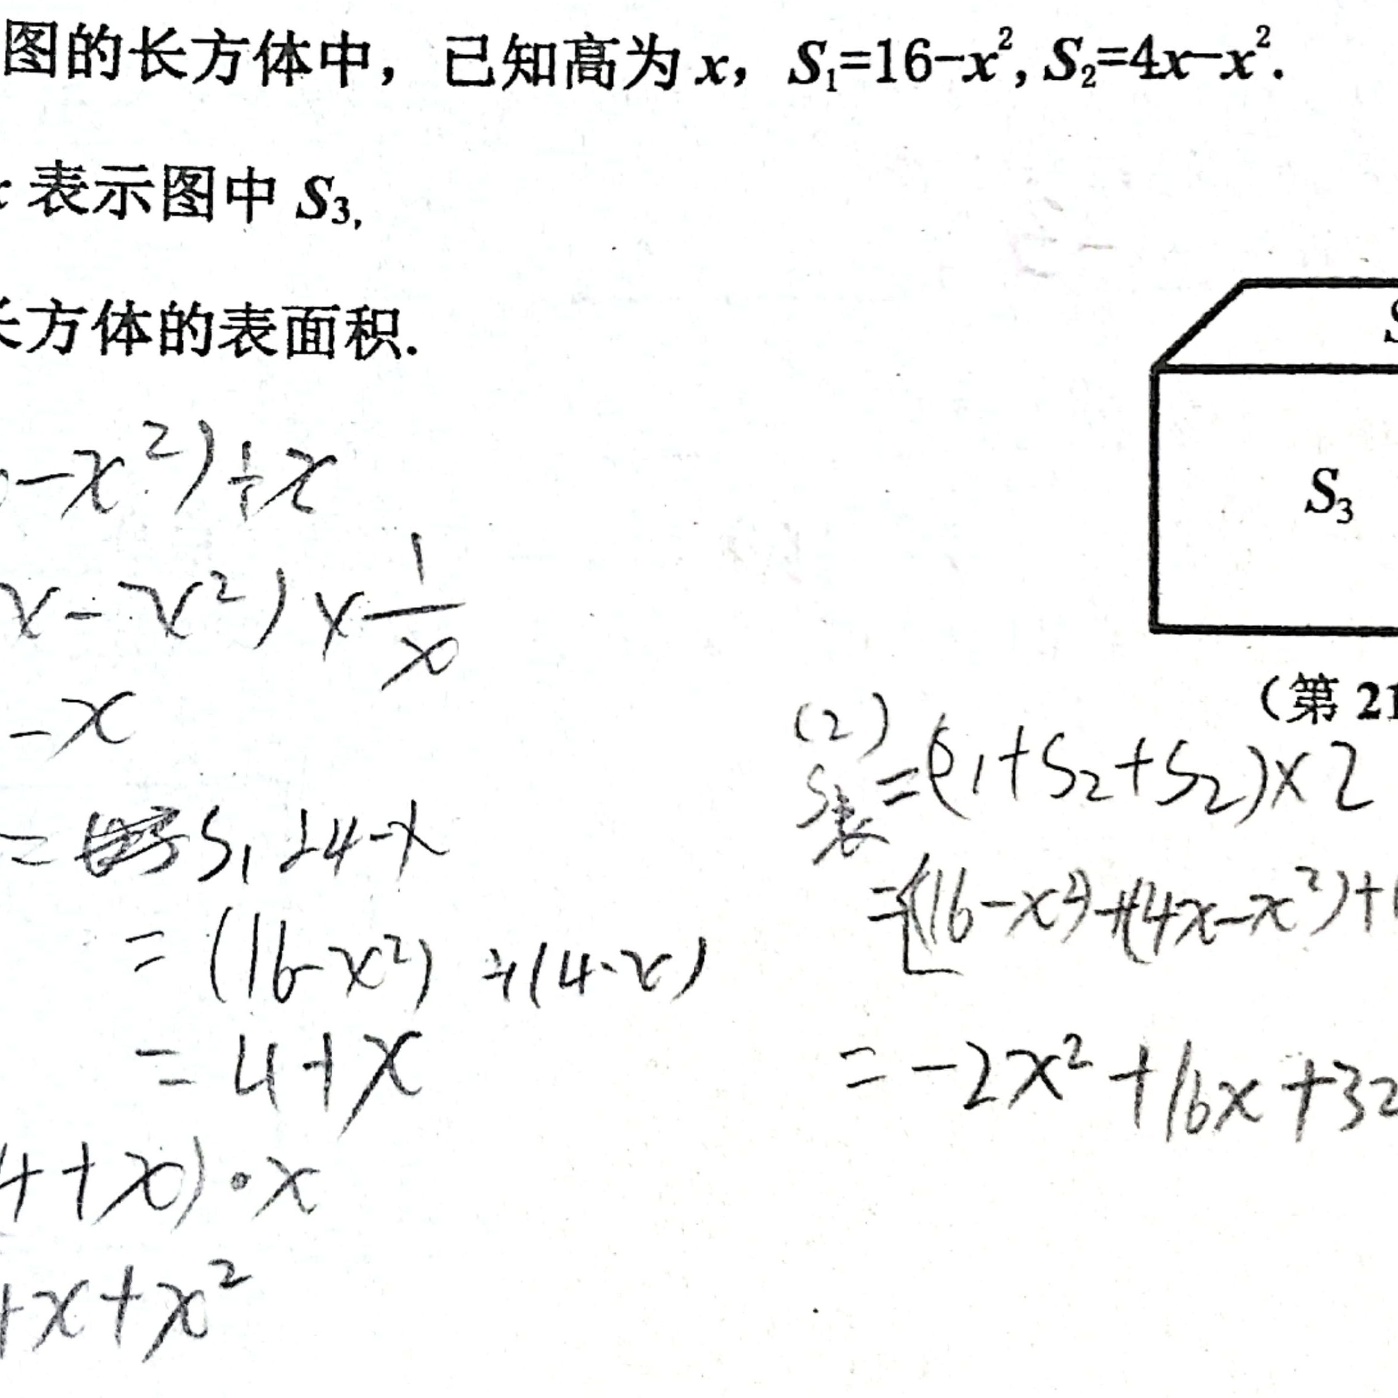 图的长方体中，已知高为 x，S₁=16-x², S₂=4x-x².
表示图中 S₃,
长方体的表面积.
S₃
（第 21
-x²)÷x
x-x²)×1/x
-x
=S₁÷4-x
=(16-x²)÷(4-x)
=4+x
4+x)·x
+x+x²
(2)
S表=(S₁+S₂+S₂)×2
=[(16-x²)+(4x-x²)+(
=-2x²+16x+32